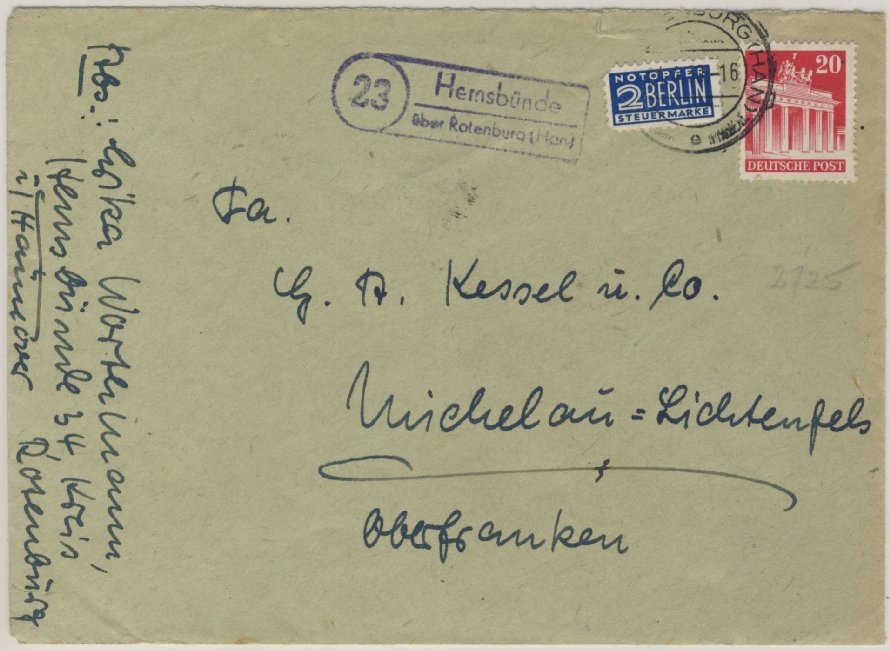 23
Hemsbünde
über Rotenburg (Han)
NOTOPFER
2 BERLIN
STEUERMARKE
BURG (HAN)
-16
e
20
DEUTSCHE POST
Fa.
G. A. Kessel u. Co.
2725
Michelau=Lichtenfels
Oberfranken
Abs.: Erika Wortermann,
Hemsbünde 34, Kreis
Rotenburg
i/Hannover